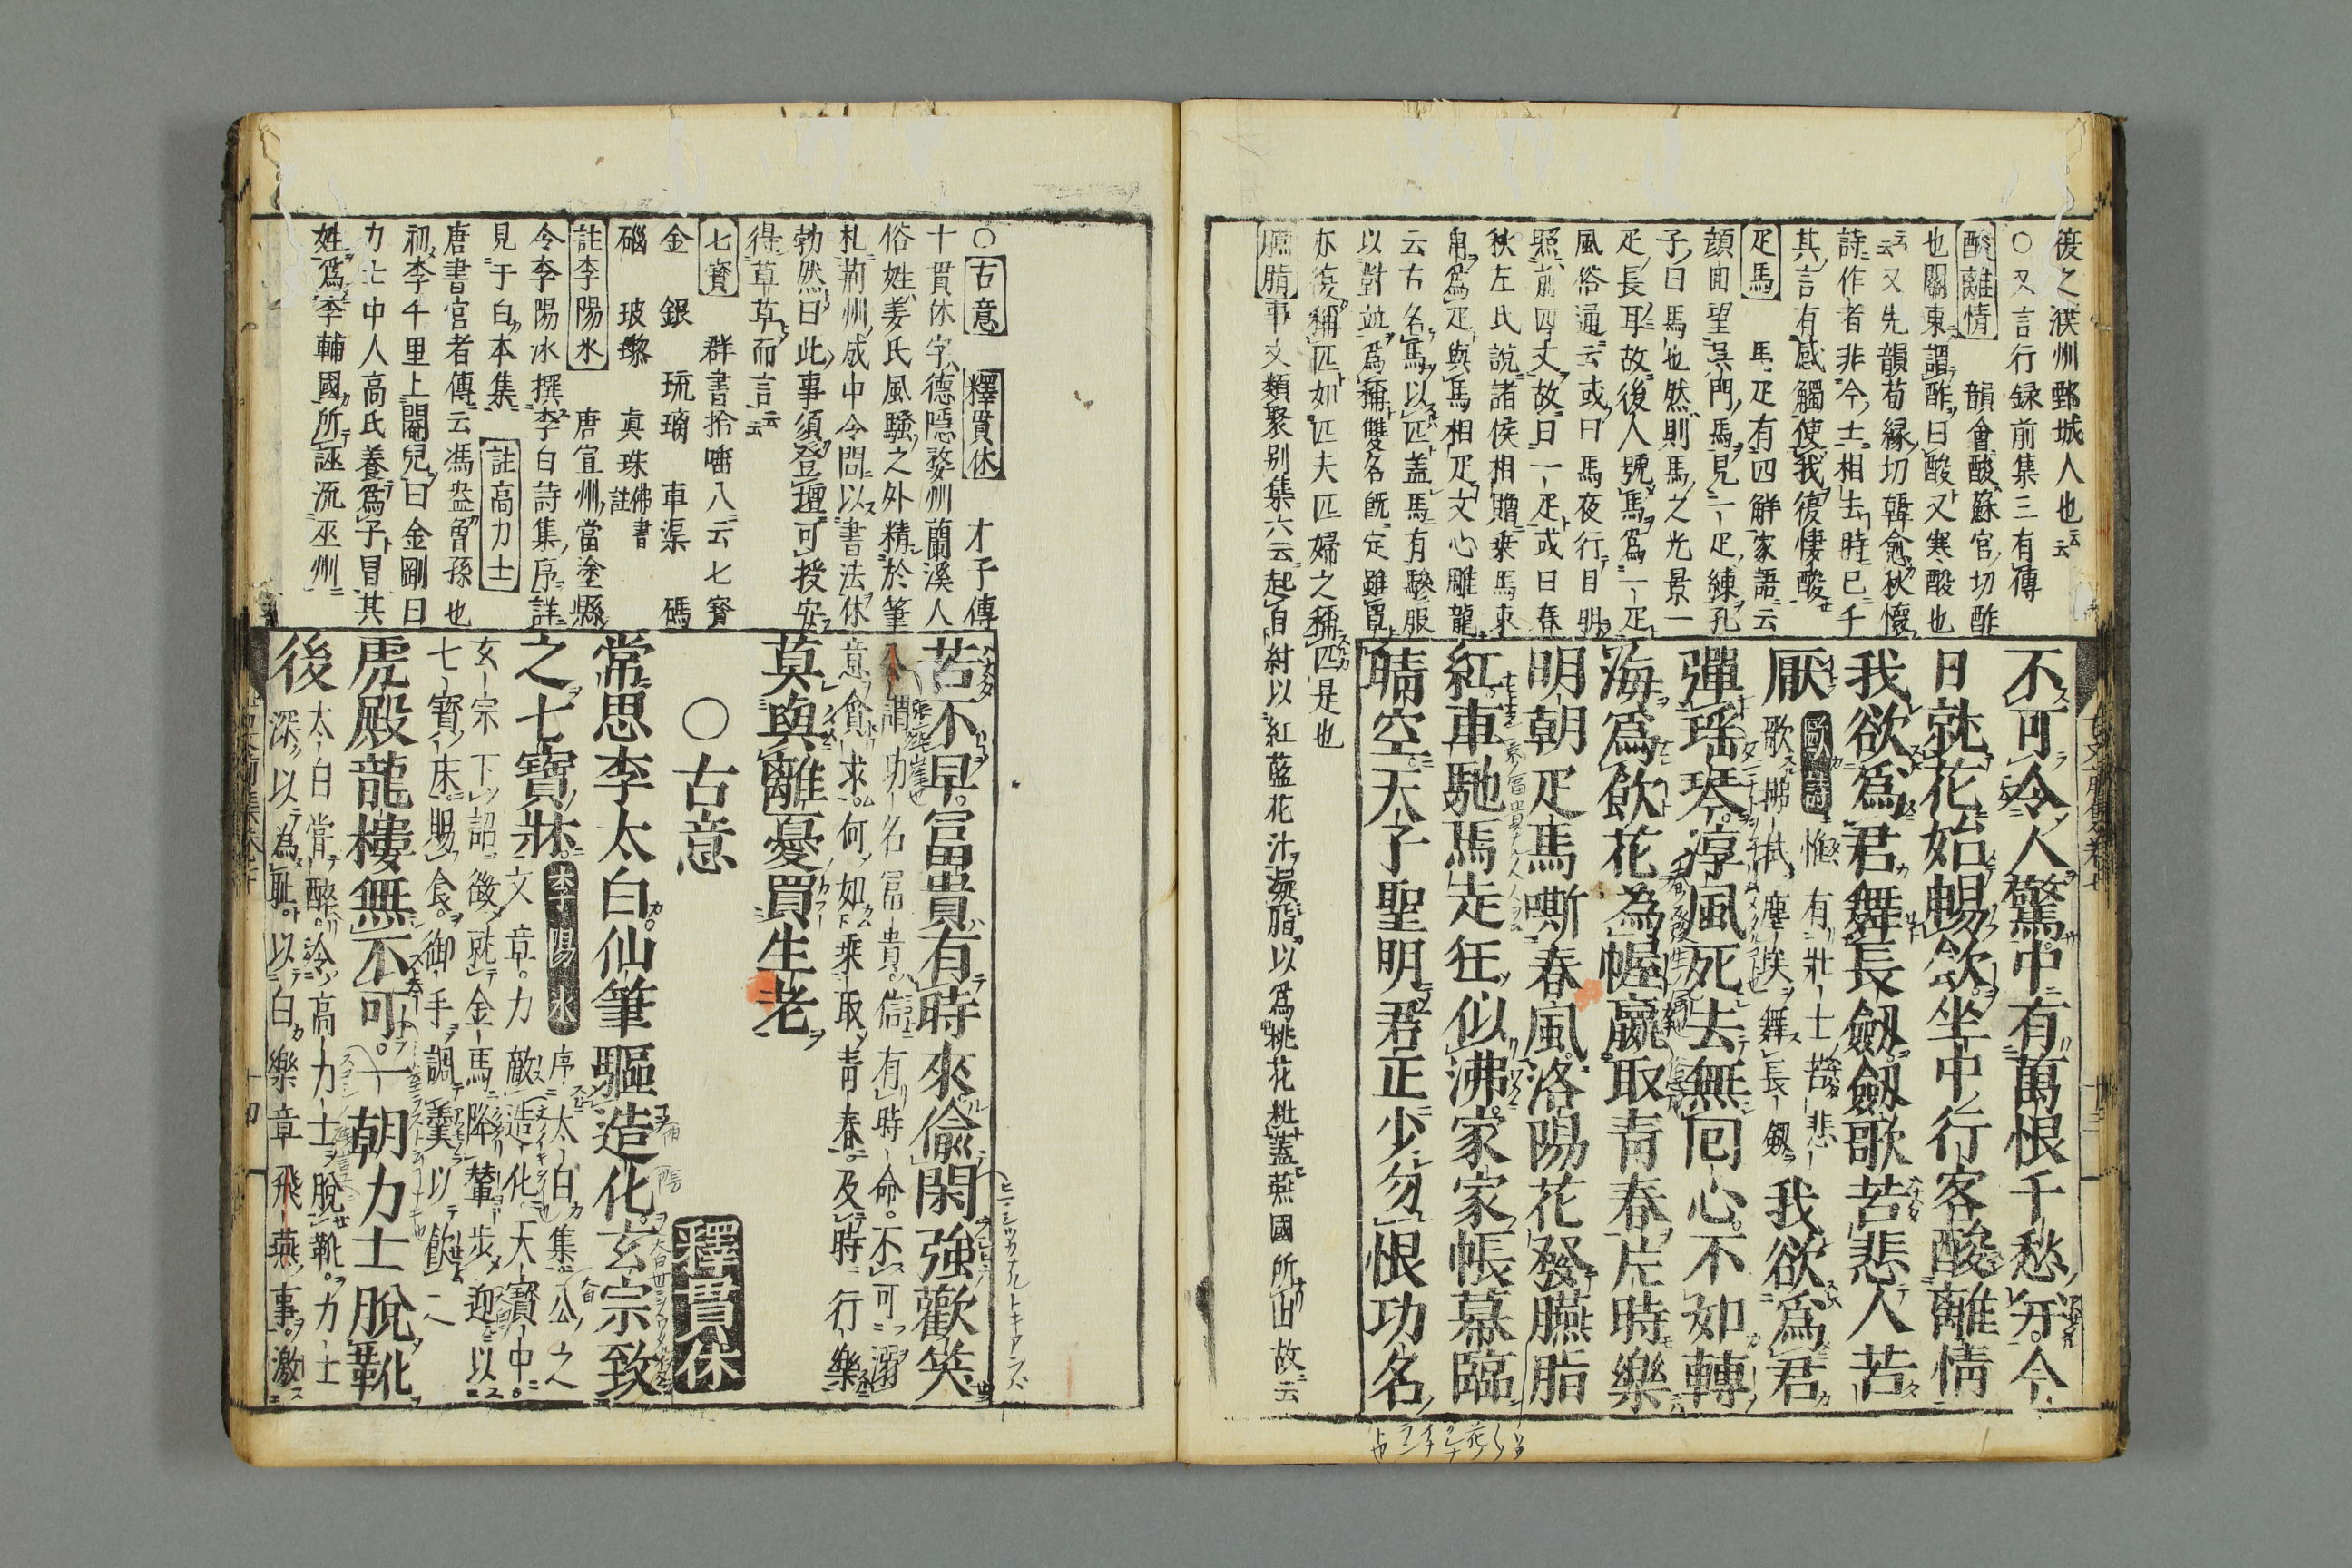 復之濮州鄄城人也云云
〇又言行録前集三有傳
酸離情 韻會酸蘇官切酢
也關東謂酢曰酸又寒酸也
云又先韻荀縁切韓愈秋懷
詩作者非今士相去時已千
其言有感觸使我復悽酸
疋馬 馬疋有四解家語云
顔囬望呉門馬見一疋練孔
子曰馬也然則馬之光景一
疋長耳故後人號馬爲一疋
風俗通云或曰馬夜行目明
照前四丈故曰一疋或曰春
秋左氏說諸侯相贈乘馬束
帛爲疋與馬相疋文心雕龍
云古名馬以匹蓋馬有驂服
以對並爲稱雙名既定雖單
亦復稱匹如匹夫匹婦之稱匹是也
臙脂事文類聚别集六云起自紂以紅藍花汁凝脂以爲桃花粧蓋燕國所出故云
不可令人驚中有萬恨千愁并今
日就花始暢飲坐中行客酸離情
我欲爲君舞長劔劔歌苦悲人苦
厭歌拂拭塵埃舞長劔惟有壯士苦悲我欲爲君
彈瑶琴淳風死去無囘心不如轉
海爲飲花為幄嬴取青春片時樂
明朝疋馬嘶春風洛陽花發臙脂
紅車馳馬走狂似沸家家帳幕臨
晴空天子聖明君正少勿恨功名
苦不早富貴有時來偷閑強歡笑
意貪求何如乘取青春及時行樂
莫與離憂買生老
〇古意
釋貫休
常思李太白仙筆驅造化玄宗致
之七寶牀李陽氷序太白集云公之文章力敵造化天寶中
玄宗下詔徵就金馬降輦步迎以
七寶床賜食御手調羹以飲之
虎殿龍樓無不可一朝力士脫靴
後太白嘗醉令高力士脫靴力士
深以為耻以白樂章飛燕事激
〇古意 釋貫休 才子傳
十貫休字德隱婺州蘭溪人
俗姓姜氏風騷之外精於筆
札荊州成中令問以書法休
勃然曰此事須登壇可授安
得草草而言云云
七寶 群書拾唾八云七寳
金 銀 琉璃 車渠 碼
碯 玻瓈 真珠 佛書註
註李陽氷 唐宣州當塗縣
令李陽冰撰李白詩集序詳
見于白本集 註高力士
唐書官者傳云馮盎曽孫也
初李千里上閹兒曰金剛曰
力士中人高氏養爲子冒其
姓爲李輔國所誣流巫州